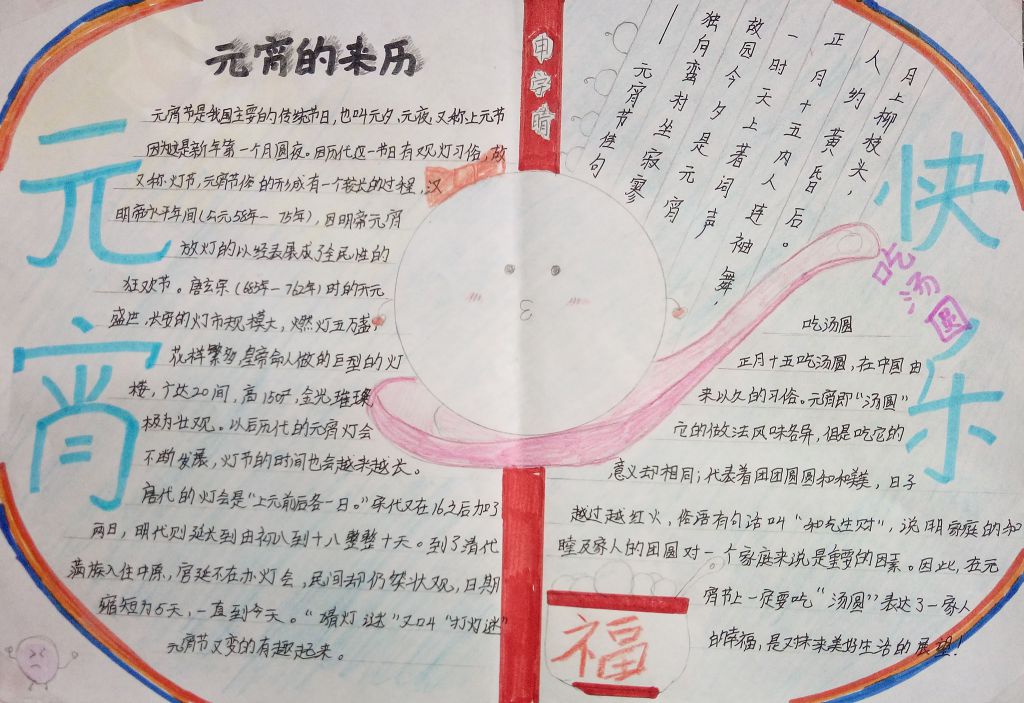 元宵的来历
元宵节是我国主要的传统节日,也叫元夕、元夜,又称上元节
因为这是新年第一个月圆夜。因历代这一节日有观灯习俗,故
又称灯节,元宵节俗的形成有一个较长的过程,汉
明帝永平年间(公元58年一75年),因明帝元宵
放灯的以经丢展成了全民性的
狂欢节。唐玄宗(685年一762年)时的开元
盛世,长安的灯市规模大,燃灯五万盏,
花样繁多皇帝命人做的巨型的灯
楼,广达20间,高150尺,金光璀璨
极为壮观。以后历代的元宵灯会
不断发展,灯节的时间也会越来越长。
唐代的灯会是“上元前后各一日。”宋代又在16之后加了
两日,明代则延长到由初八到十八整整十天。到了清代
满族入住中原,宫廷不在办灯会,民间却仍然状观,日期
缩短为5天,一直到今天。“猜灯谜”又叫“打灯谜”
元宵节又变的有趣起来。
元宵
申学晴
月上柳枝头,
人约黄昏后。
正月十五内人连袖舞,
一时天上著词声
故园今夕是元宵
独向蛮村坐寂寥
——元宵节佳句
快乐
吃汤圆
吃汤圆
正月十五吃汤圆,在中国由
来以久的习俗。元宵即“汤圆”
它的做法风味各异,但是吃它的
意义却相同;代表着团团圆圆和和美美,日子
越过越红火,俗语有句话叫“和气生财”,说明家庭的和
睦及家人的团圆对一个家庭来说是重要的因素。因此,在元
宵节上一定要吃“汤圆”表达了一家人
的幸福,是对未来美好生活的展望!
福